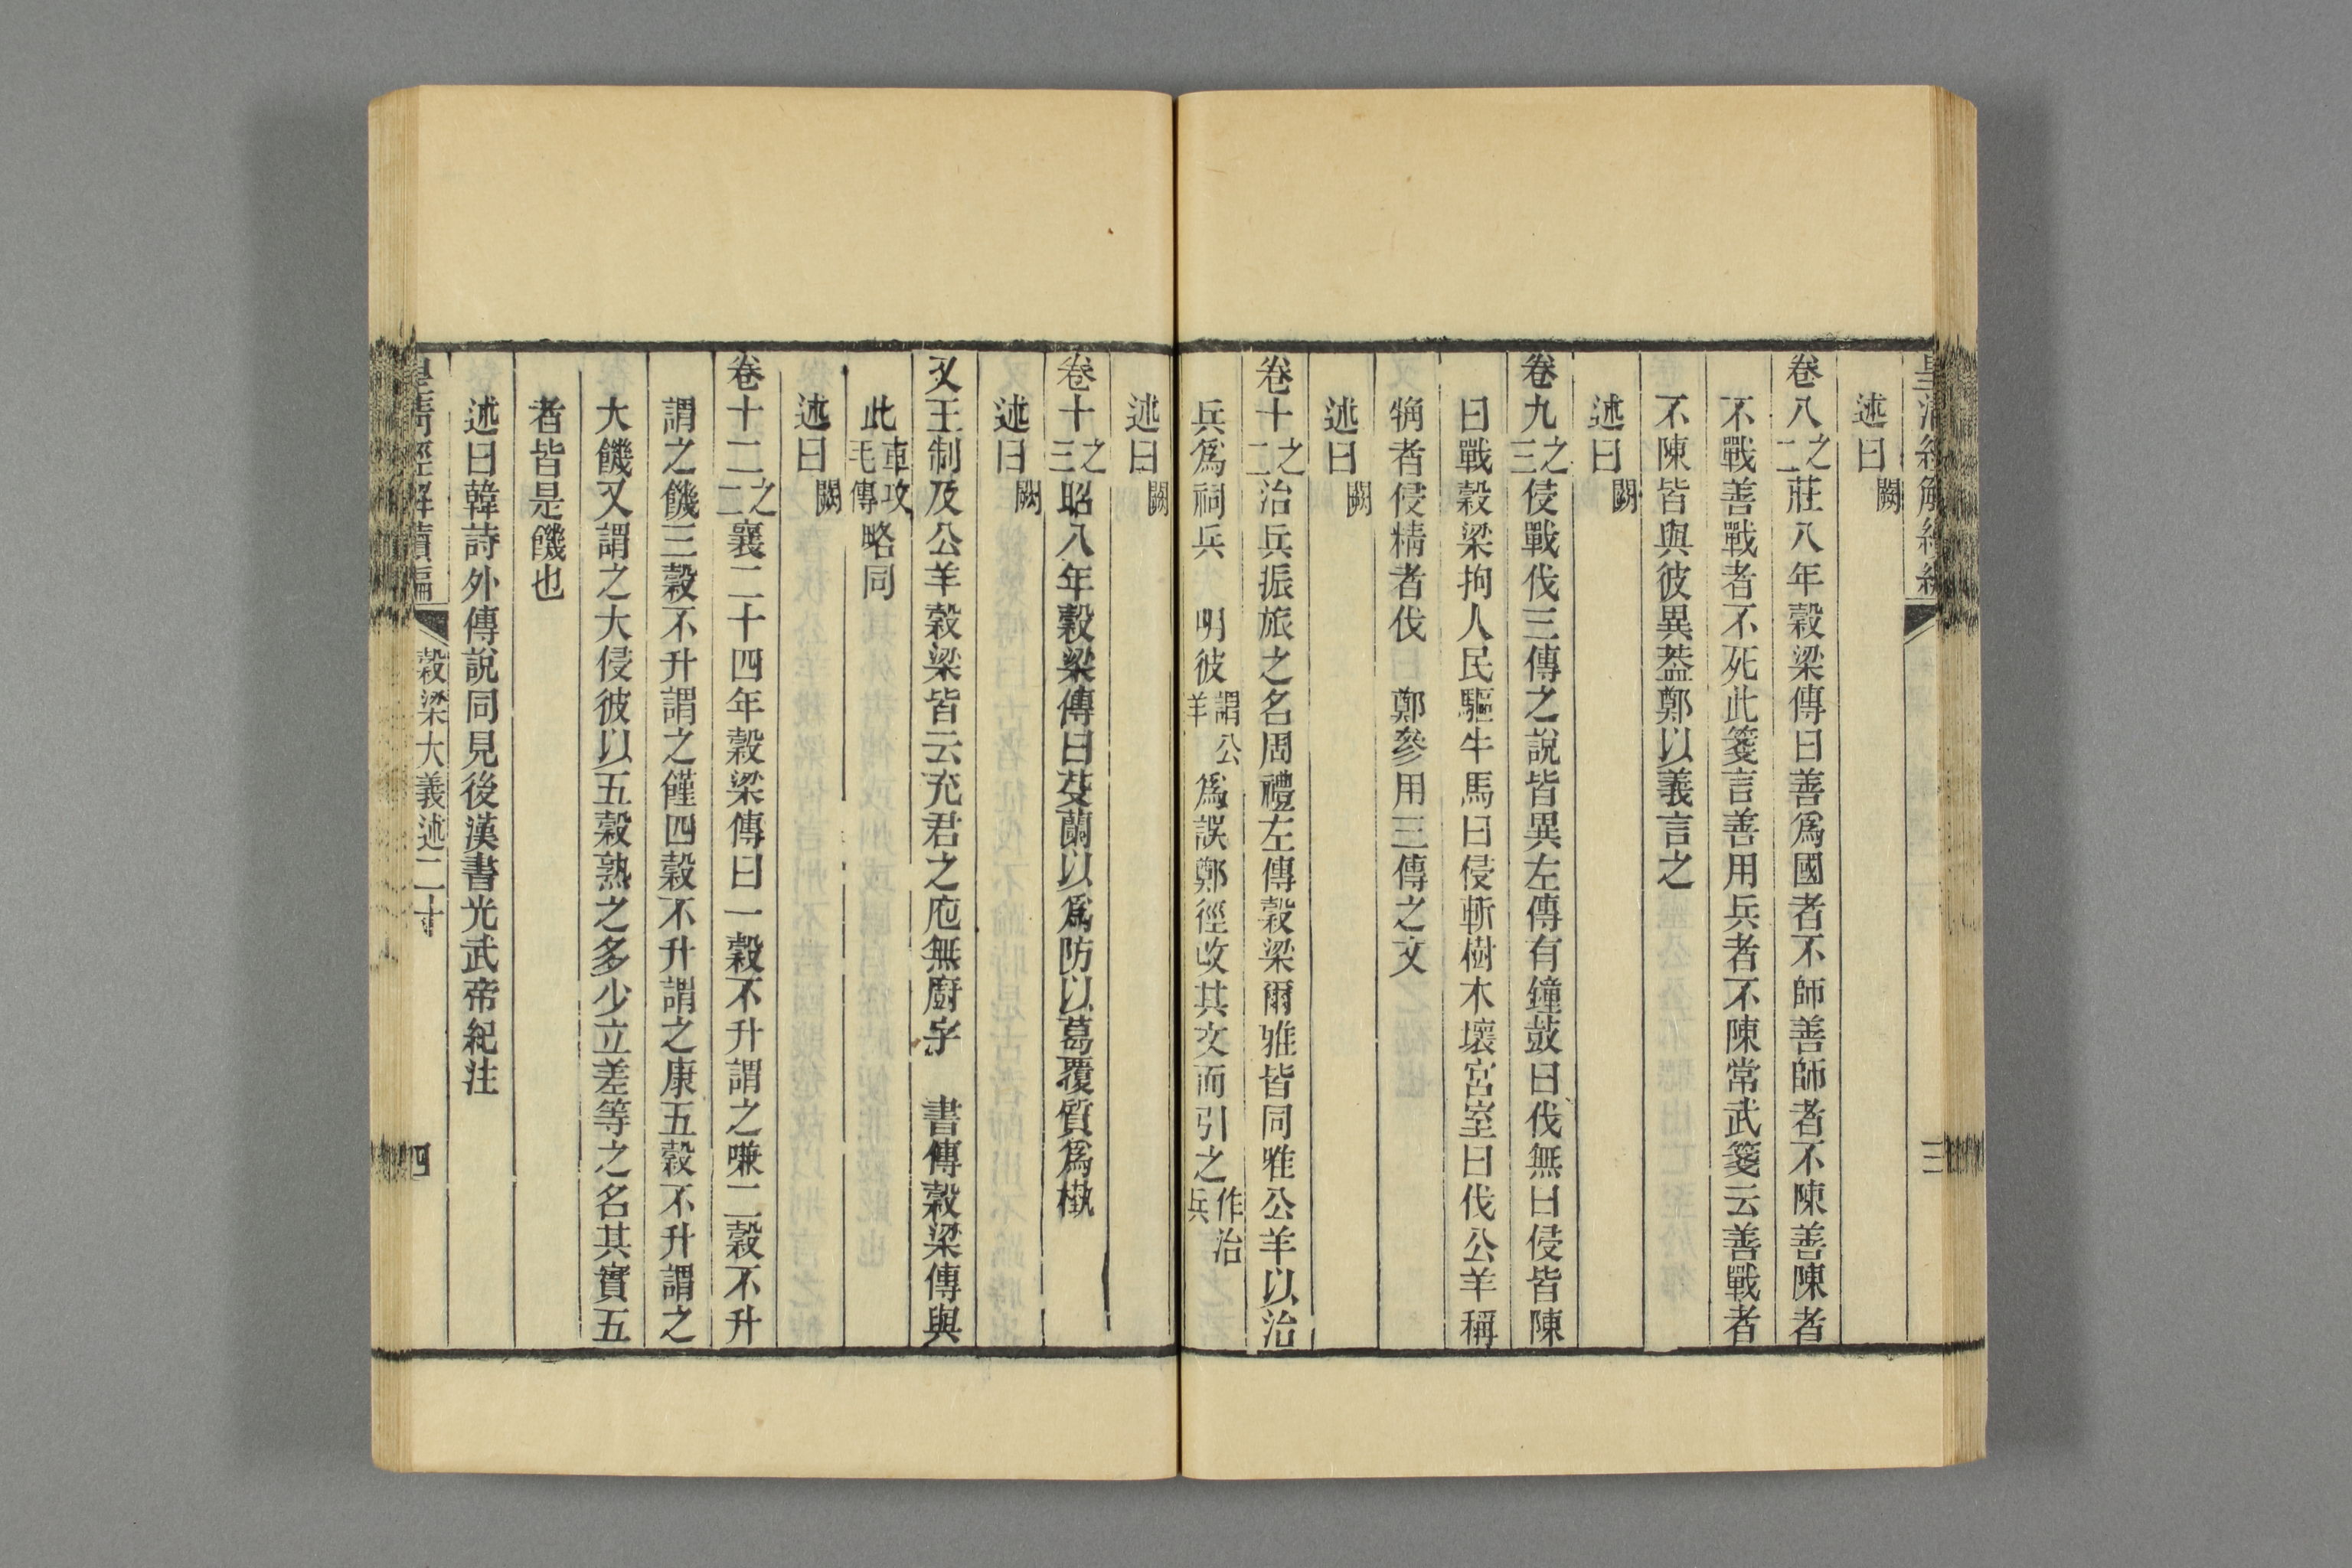 述曰闕
卷八之二莊八年穀梁傳曰善爲國者不師善師者不陳善陳者
不戰善戰者不死此箋言善用兵者不陳常武箋云善戰者
不陳皆與彼異葢鄭以義言之
述曰闕
卷九之三侵戰伐三傳之說皆異左傳有鐘鼓曰伐無曰侵皆陳
曰戰穀梁拘人民驅牛馬曰侵斬樹木壞宮室曰伐公羊稱
觕者侵精者伐 鄭參用三傳之文
述曰闕
卷十之二治兵振旅之名周禮左傳穀梁爾雅皆同唯公羊以治
兵爲祠兵 明彼謂公羊爲誤鄭徑改其文而引之作治兵
述曰闕
卷十之三昭八年穀梁傳曰芟蘭以爲防以葛覆質爲槸
述曰闕
又王制及公羊穀梁皆云充君之庖無廚字 書傳穀梁傳與
此車攻毛傳略同
述曰闕
卷十二之二襄二十四年穀梁傳曰一穀不升謂之嗛二穀不升
謂之饑三穀不升謂之饉四穀不升謂之康五穀不升謂之
大饑又謂之大侵彼以五穀熟之多少立差等之名其實五
者皆是饑也
述曰韓詩外傳說同見後漢書光武帝紀注
皇清經解續編 穀梁大義述二十 四